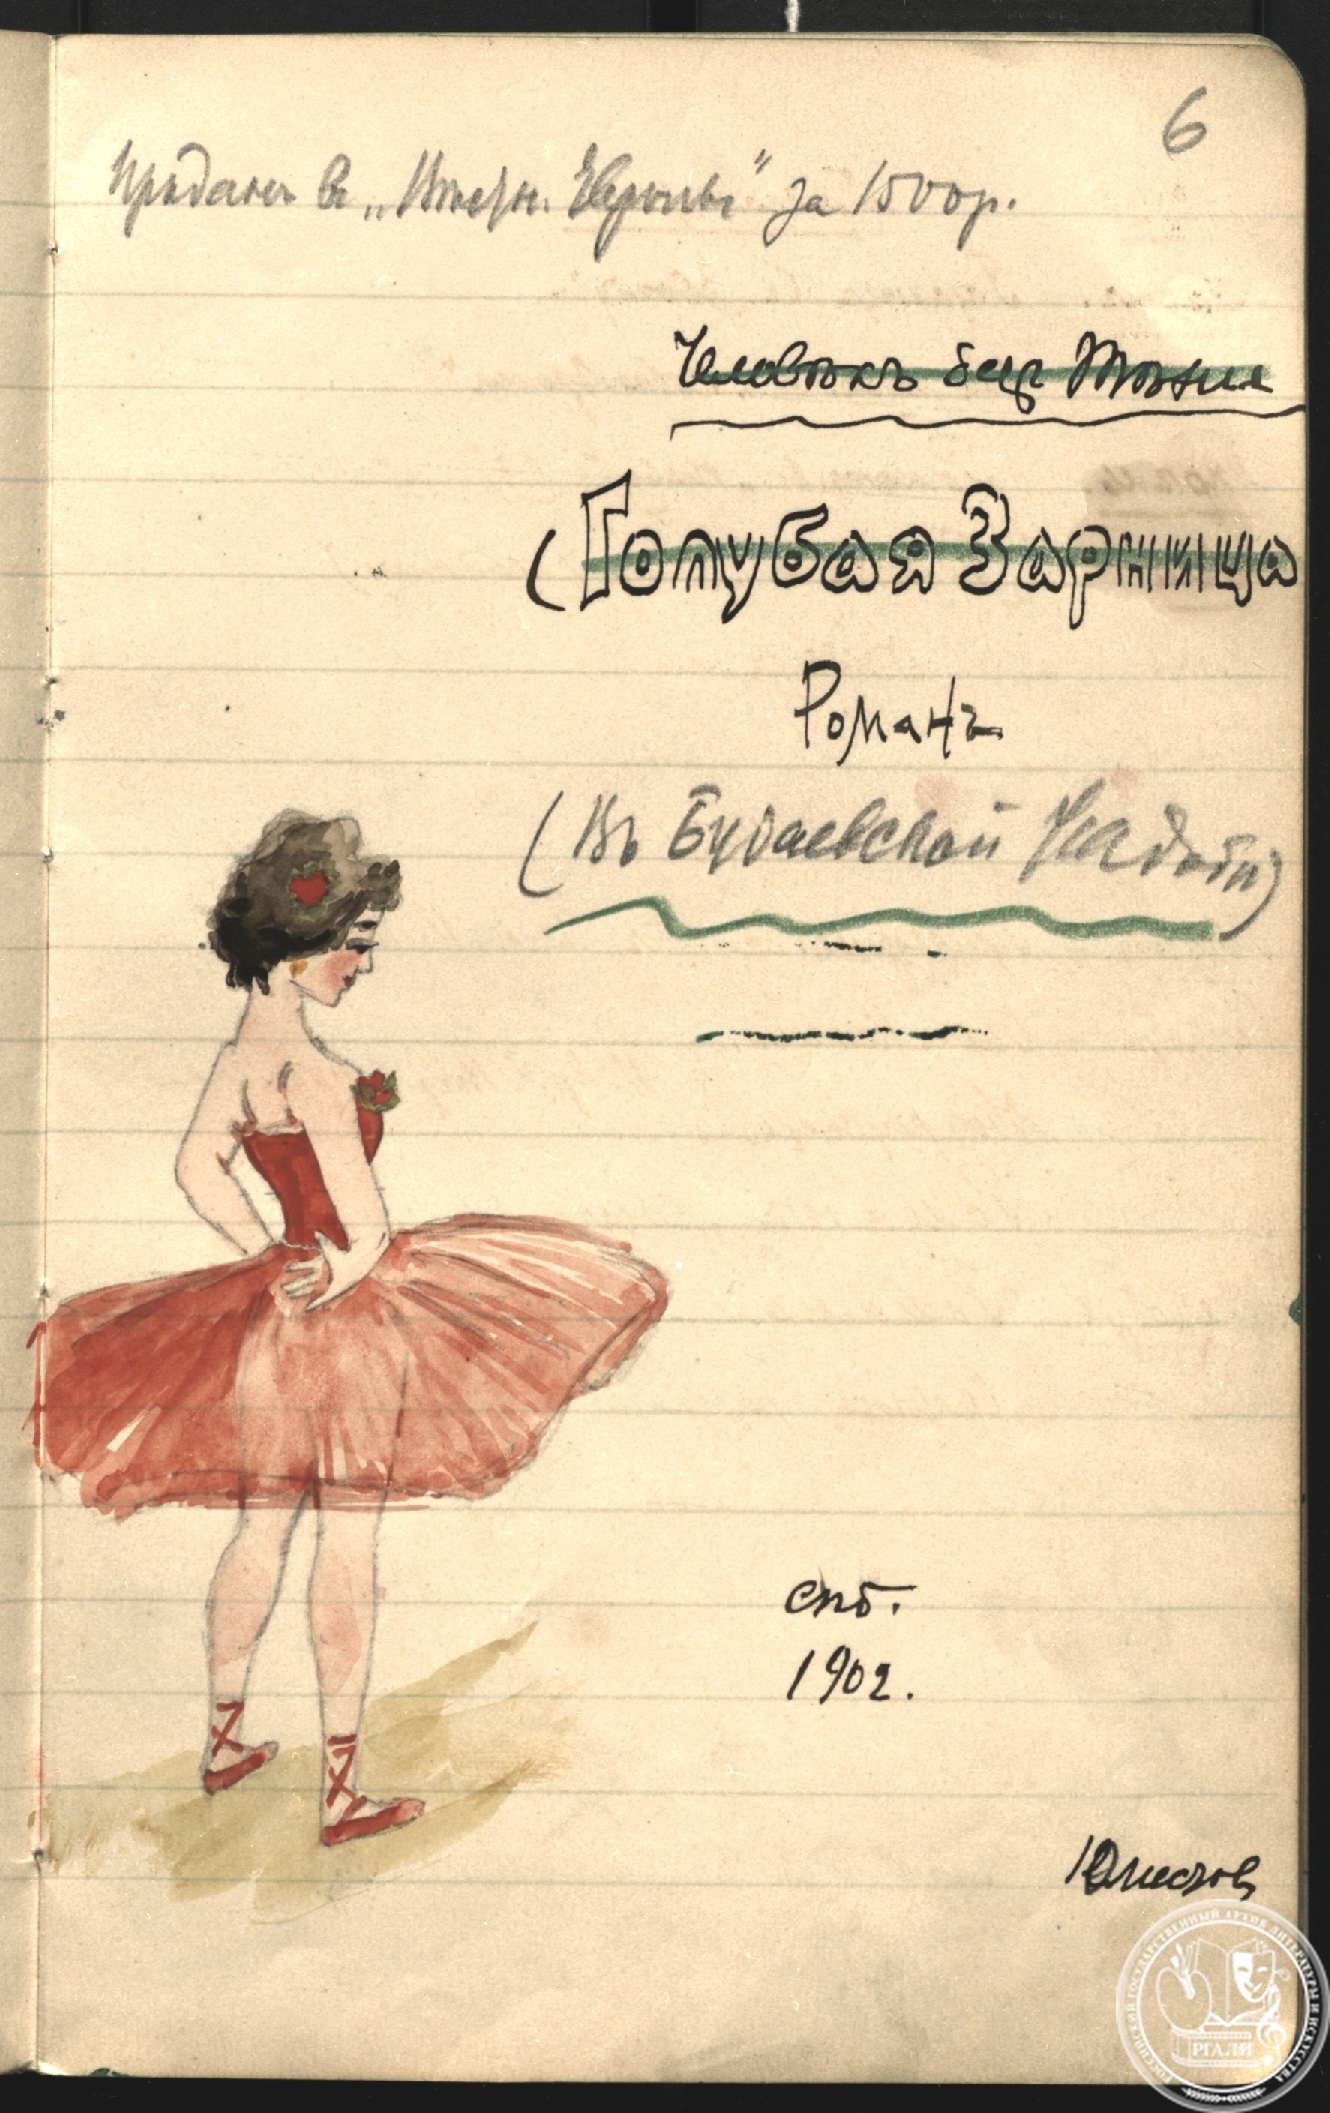 6
Проданъ въ „Вѣстн. Европы“ за 1500р.
Человѣкъ безъ
(Голубая Зарница
Романъ
(Въ Будаевской Усадьбѣ)
спб.
1902.
РОССИЙСКИЙ ГОСУДАРСТВЕННЫЙ АРХИВ ЛИТЕРАТУРЫ И ИСКУССТВА
РГАЛИ